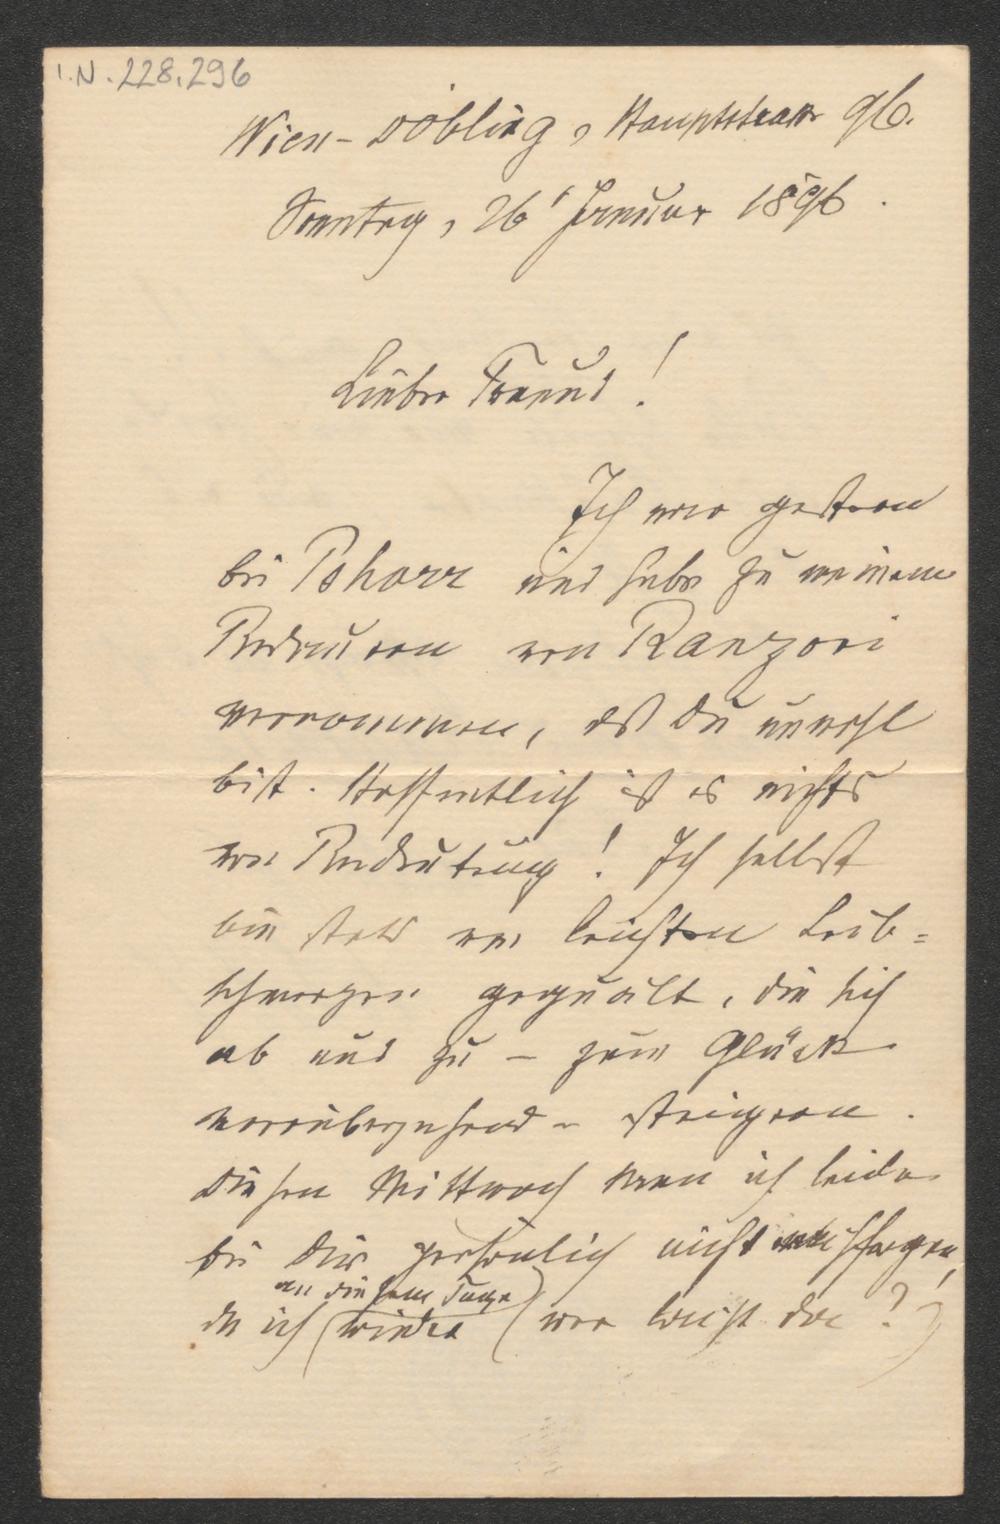 I.N. 228.296
Wien-Döbling, Hauptstrasse 96.
Sonntag, 26t Januar 1896.
Lieber Freund!
Ich war gestern
bei Pohorr und habe zu meinem
Bedauern von Ranzoni
vernommen, daß Du unwohl
bist. Hoffentlich ist es nichts
von Bedeutung! Ich selbst
bin stets von leichten Leib-
schmerzen gequält, die sich
ab und zu – zum Glück
vorübergehend – steigern.
Diesen Mittwoch kann ich leider
bei Dir persönlich nicht nachfragen,
an diesem Tage
da ich wieder (wer weiß wo?)